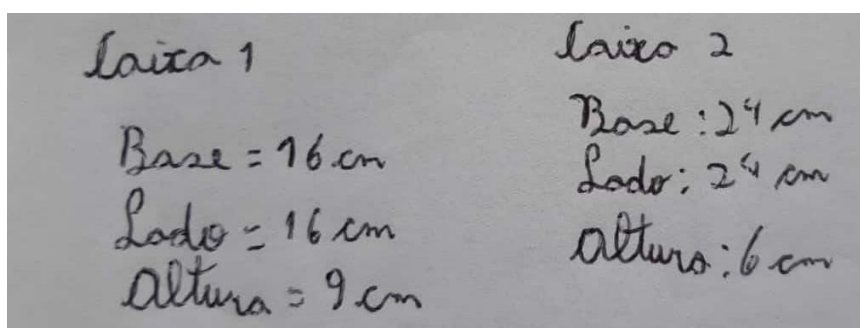 Caixa 1
Base = 16 cm
Lado = 16 cm
Altura = 9 cm
Caixa 2
Base: 24 cm
Lado: 24 cm
Altura: 6 cm